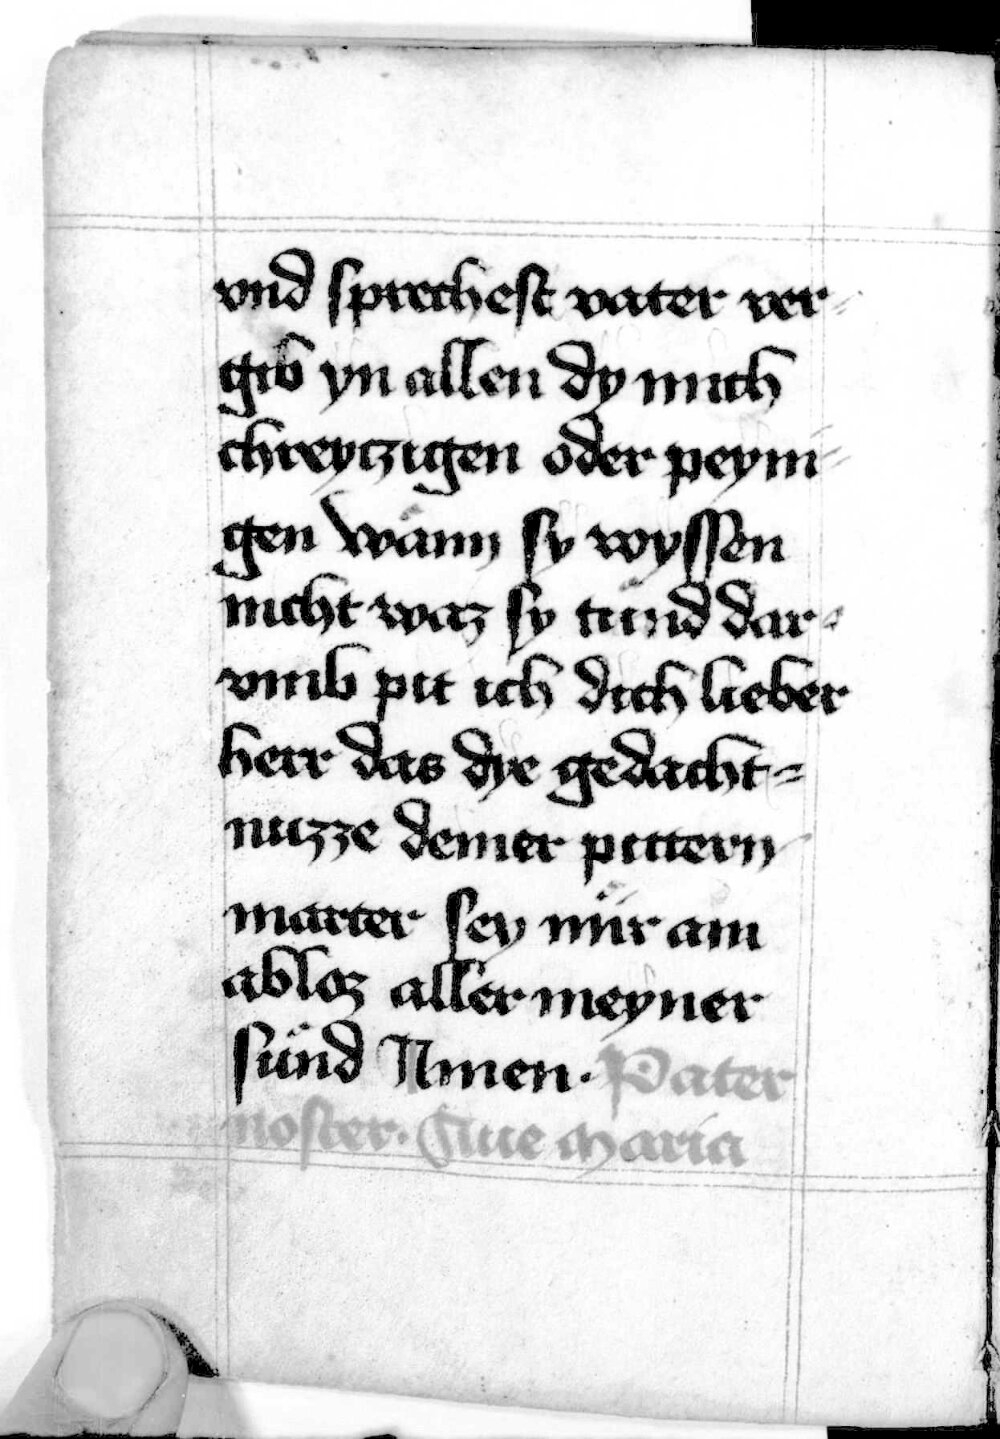 vnd sprechest vater ver-
gib yn allen dy mich
chreyczigen oder peyni-
gen wänn sy wyssen
nicht waz sy tünd dar-
vmb pit ich dich lieber
herr das dye gedächt-
nuzze deiner pittern
marter sey mir ain
abloz aller meyner
sünd Amen. Pater
noster. Aue maria